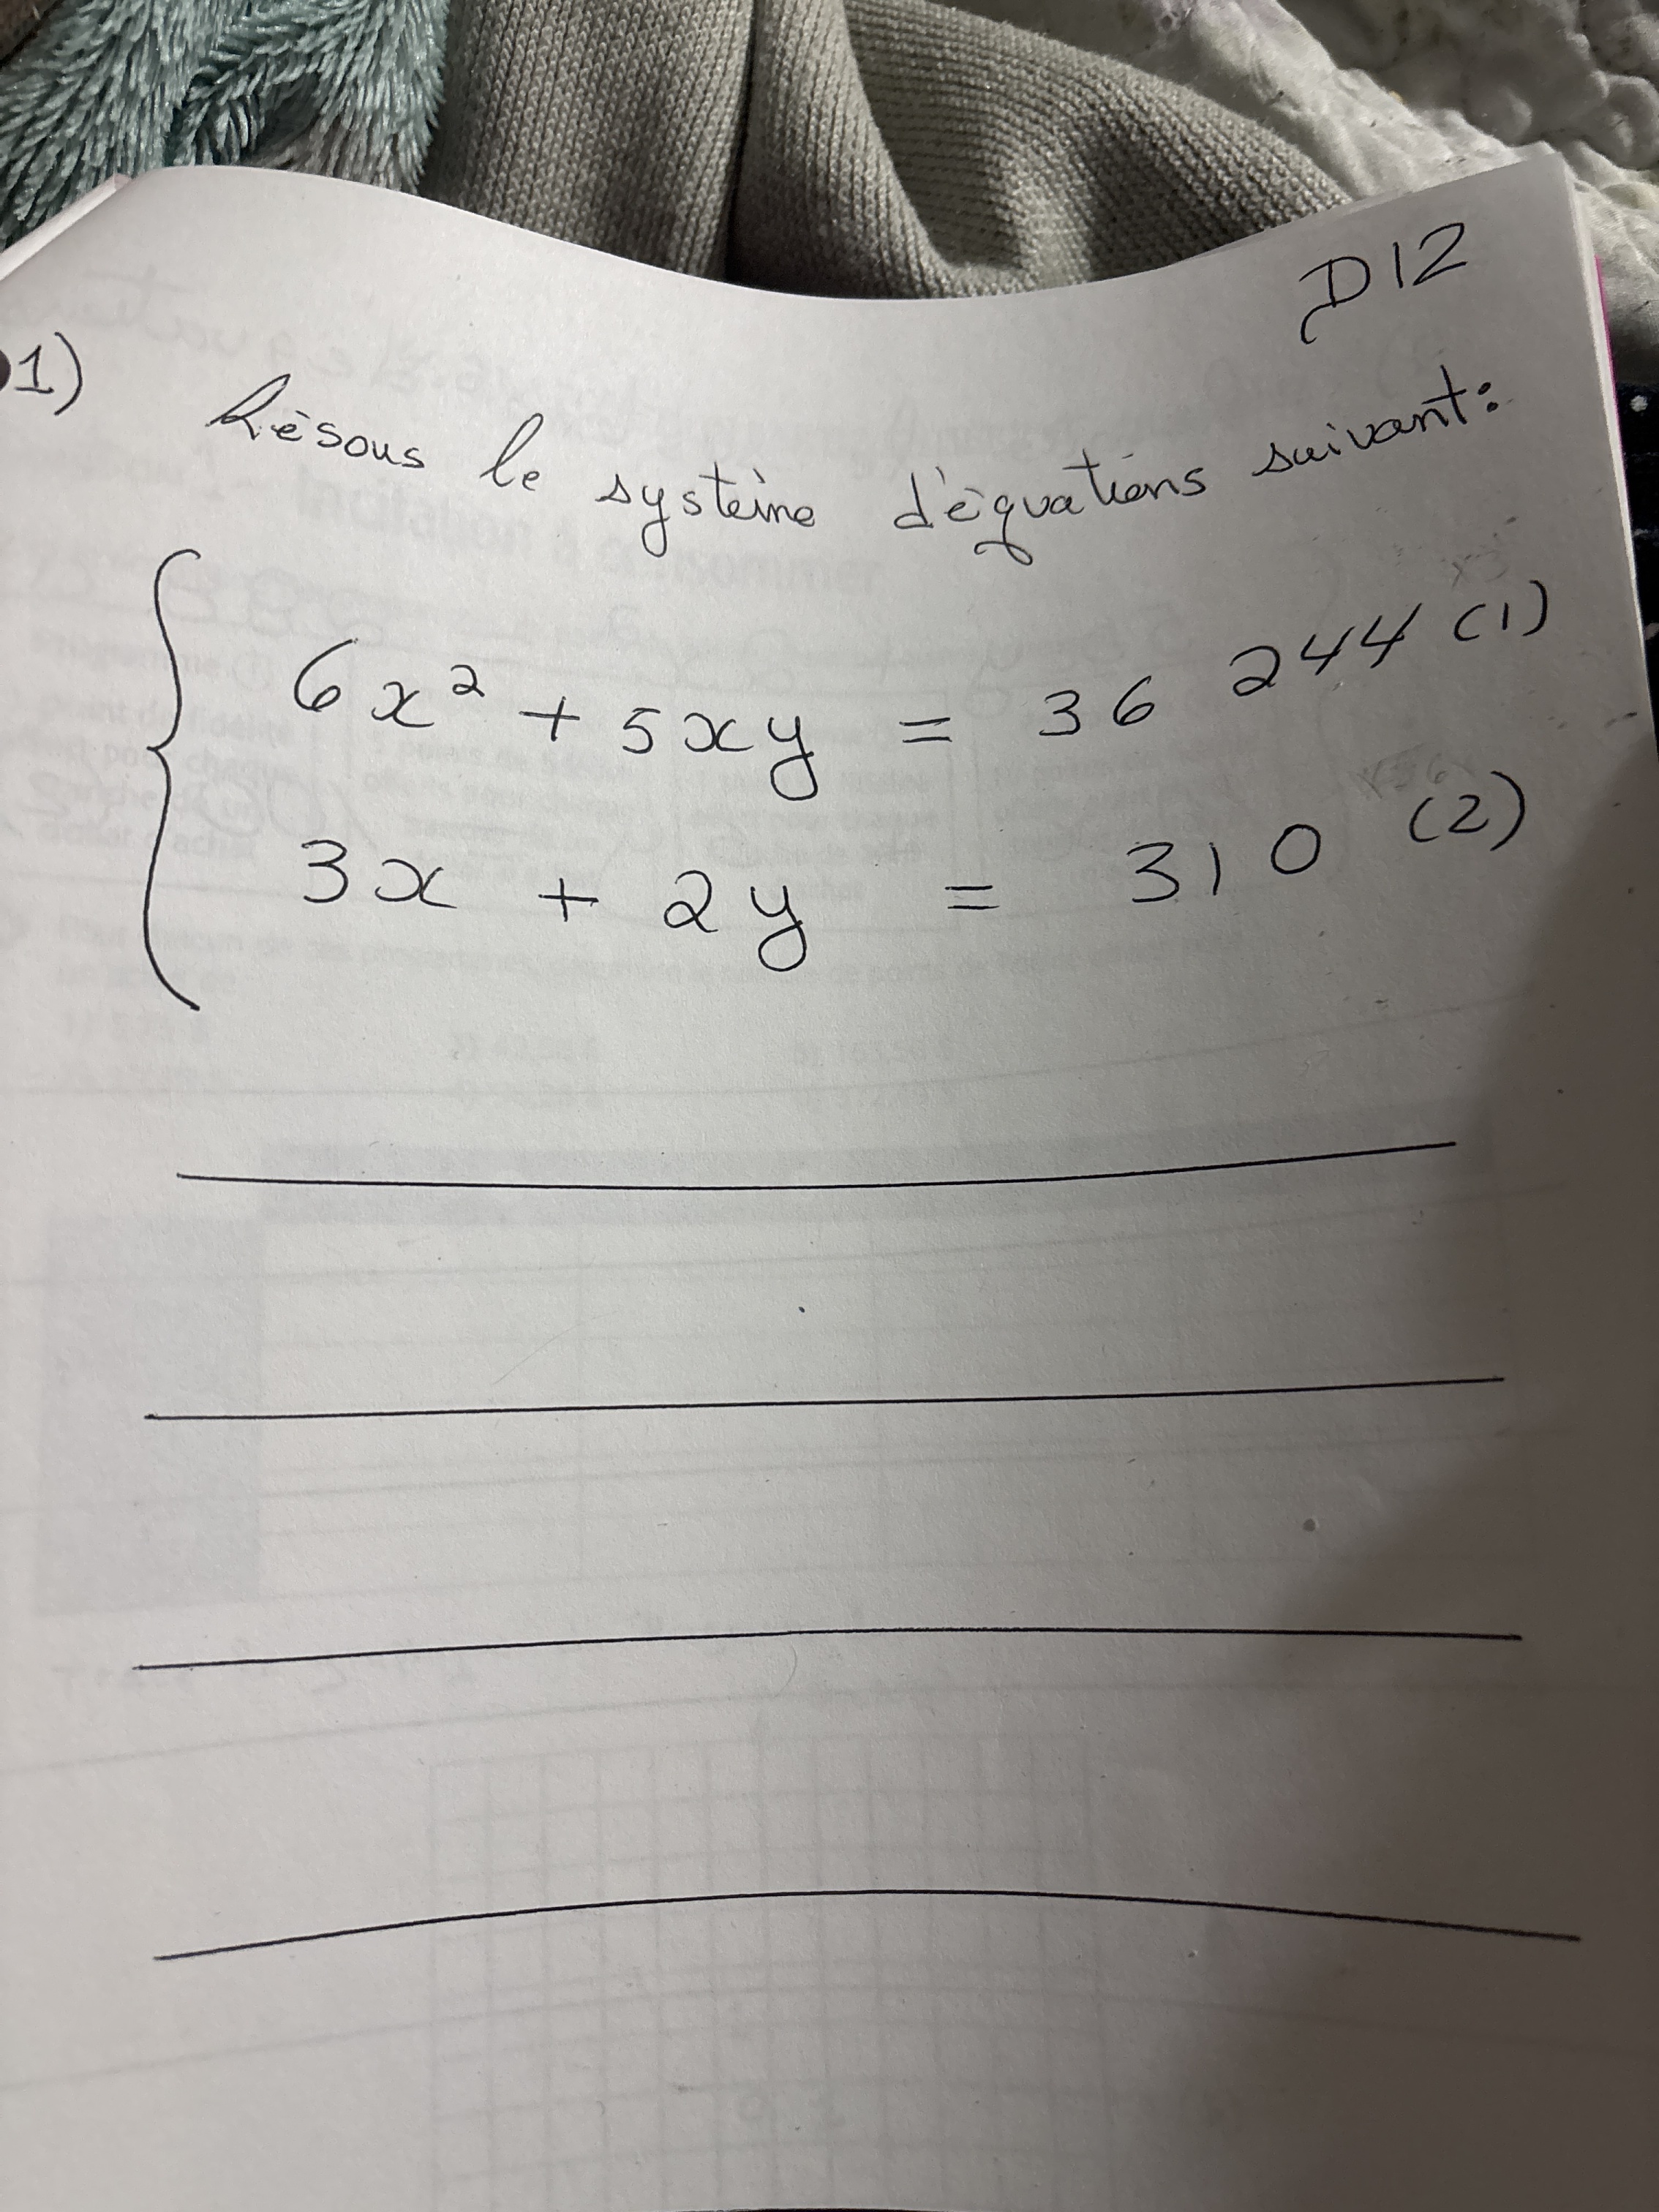 D12
1) Résous le système d'équations suivant:
6x² + 5xy = 36 244 (1)
3x + 2y = 310 (2)